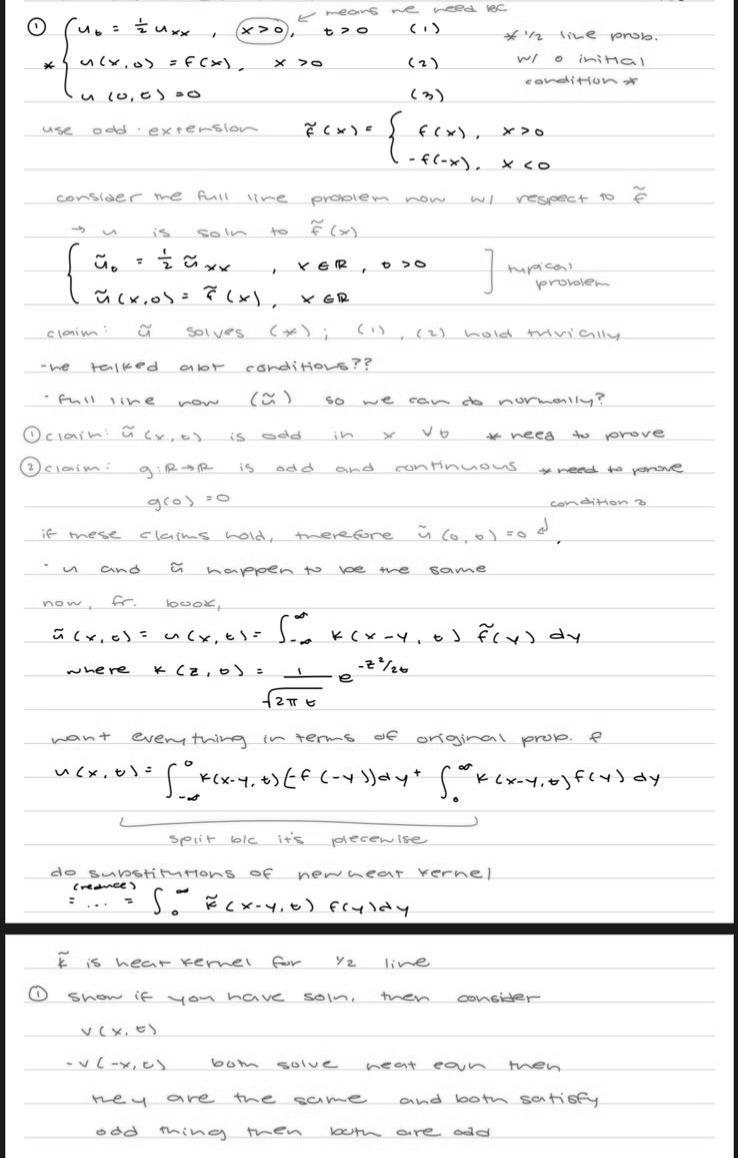 ← means we need BC
① { u_t = ½ u_xx , x>0, t>0 (1) * ½ line prob.
* { u(x,0) = f(x), x>0 (2) w/ 0 initial
{ u(0,t)=0 (3) condition *
use odd extension f̃(x) = { f(x), x>0
-f(-x), x<0
consider the full line problem now w/ respect to f̃
→ u is soln to f̃(x)
{ ũ_t = ½ ũ_xx , x∈ℝ, t>0 ] typical
{ ũ(x,0) = f̃(x), x∈ℝ problem
claim: ũ solves (*); (1), (2) hold trivially
-he talked abt conditions??
· full line now (ũ) so we can do normally?
① claim: ũ(x,t) is odd in x ∀t * need to prove
② claim: g:ℝ→ℝ is odd and continuous * need to prove
g(0)=0 condition 3
if these claims hold, therefore ũ(0,t)=0
· u and ũ happen to be the same
now, fr. book,
ũ(x,t) = u(x,t) = ∫_{-∞}^{∞} k(x-y, t) f̃(y) dy
where k(z,t) = 1/√(2πt) e^{-z²/2t}
want everything in terms of original prob. f
u(x,t) = ∫_{-∞}^{0} k(x-y,t)(-f(-y))dy + ∫_{0}^{∞} k(x-y,t)f(y)dy
split b/c it's piecewise
do substitutions of new heat kernel
(reduce)
= ... = ∫_{0}^{∞} k̃(x-y,t) f(y)dy
k̃ is heat kernel for ½ line
① show if you have soln, then consider
v(x,t)
-v(-x,t) both solve heat eqn then
they are the same and both satisfy
odd thing then both are odd